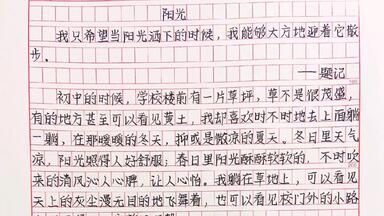 阳光
我只希望当阳光洒下的时候，我能够大方地迎着它散
步。
——题记
初中的时候，学校楼前有一片草坪，草不是很茂盛，
有的地方甚至可以看见黄土，我却喜欢时不时地去上面躺
一躺，在那暖暖的冬天，抑或是微凉的夏天。冬日里天气
凉，阳光照得人好舒服；春日里阳光酥酥软软的，不时吹
来的清风沁人心脾，让人心怡。我躺在草地上，可以看见
天上的灰尘漫无目的地飞舞着，也可以看见校门外的小路